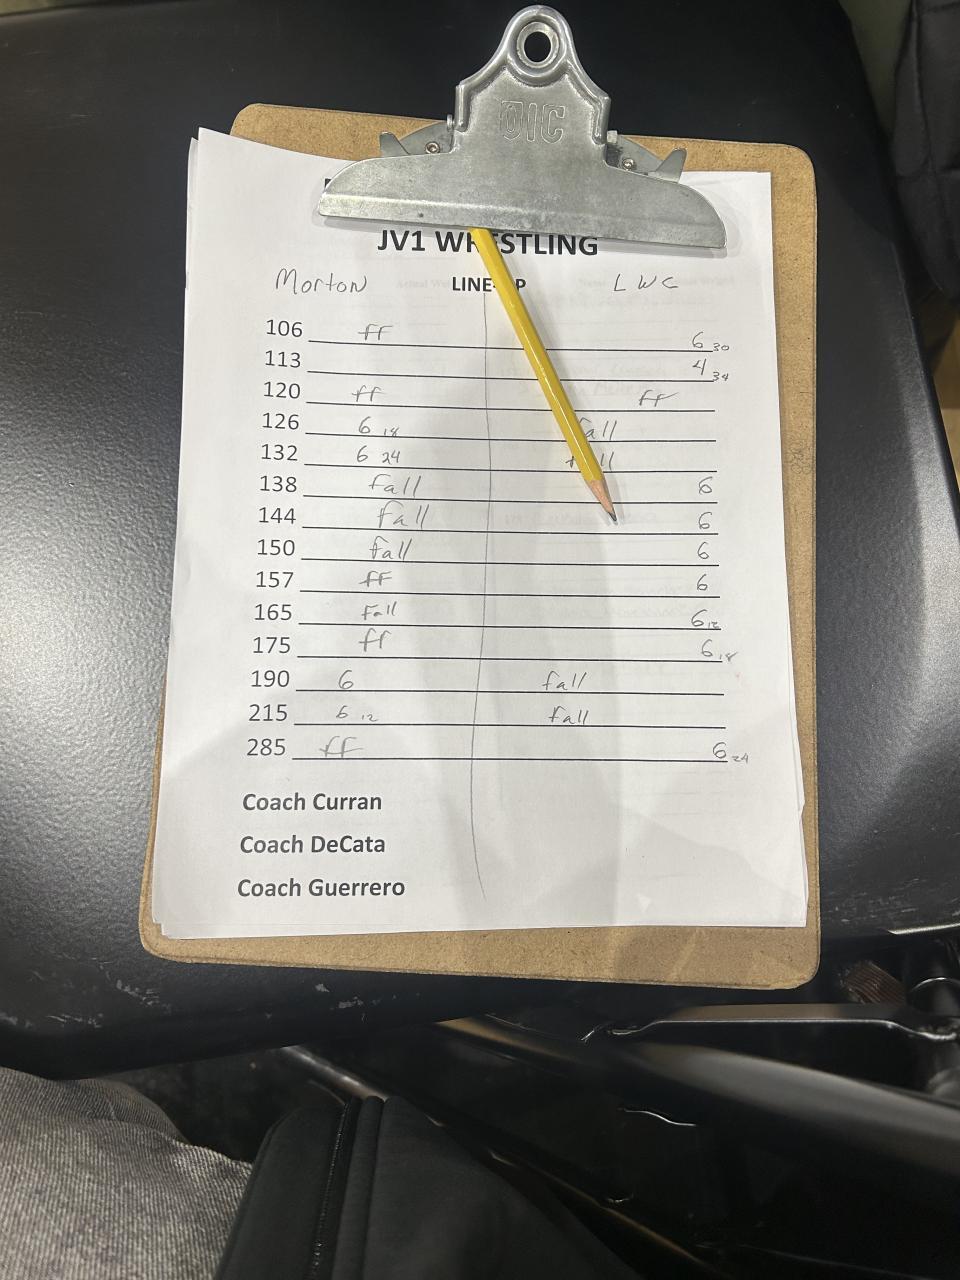 OIC
JV1 WRESTLING
Morton LINE-UP LWC
106 ff 6 30
113 4 34
120 ff ff
126 6 18 fall
132 6 24 fall
138 fall 6
144 fall 6
150 fall 6
157 ff 6
165 Fall 6 12
175 ff 6 18
190 6 fall
215 6 12 fall
285 ff 6 24
Coach Curran
Coach DeCata
Coach Guerrero